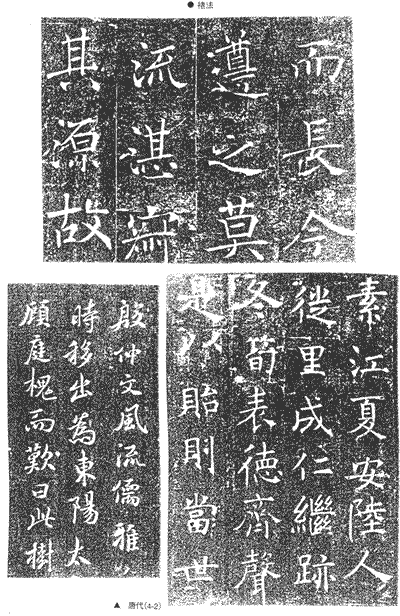 ● 褚法
而長今
遵之莫
流湛寂
其源故
素江夏安陸人
徙里成仁繼跡
冬筍表德齊聲
是以貽則當世
殷仲文風流儒雅
時移出為東陽太
顧庭槐而歎曰此樹
▲ 唐代(4-2)